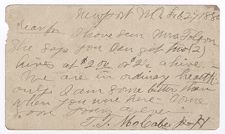 Newport Me Feb 27 188
Dear Sir I have seen Mrs
She says you can get two (2)
hives at $2.00 or $2. a hive.
We are in ordinary health
only I am some better than
when you were here. Come
soon
T. J. McCabe